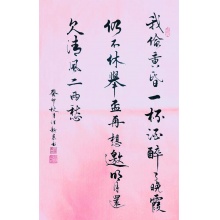 我偷黄昏一杯酒醉了晚霞
仍不休举盃再想邀明月还
欠清风二两愁
癸卯秋月